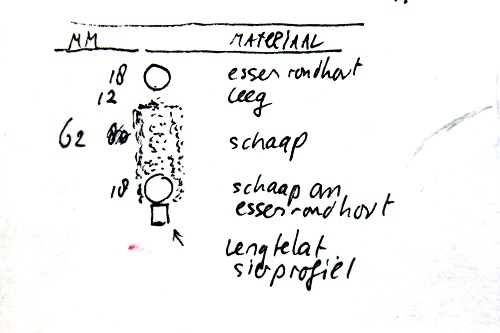 MM MATERIAAL
18 essen rondhout
12 leeg
62 schaap
18 schaap om
essenrondhout
lengtelat
sierprofiel